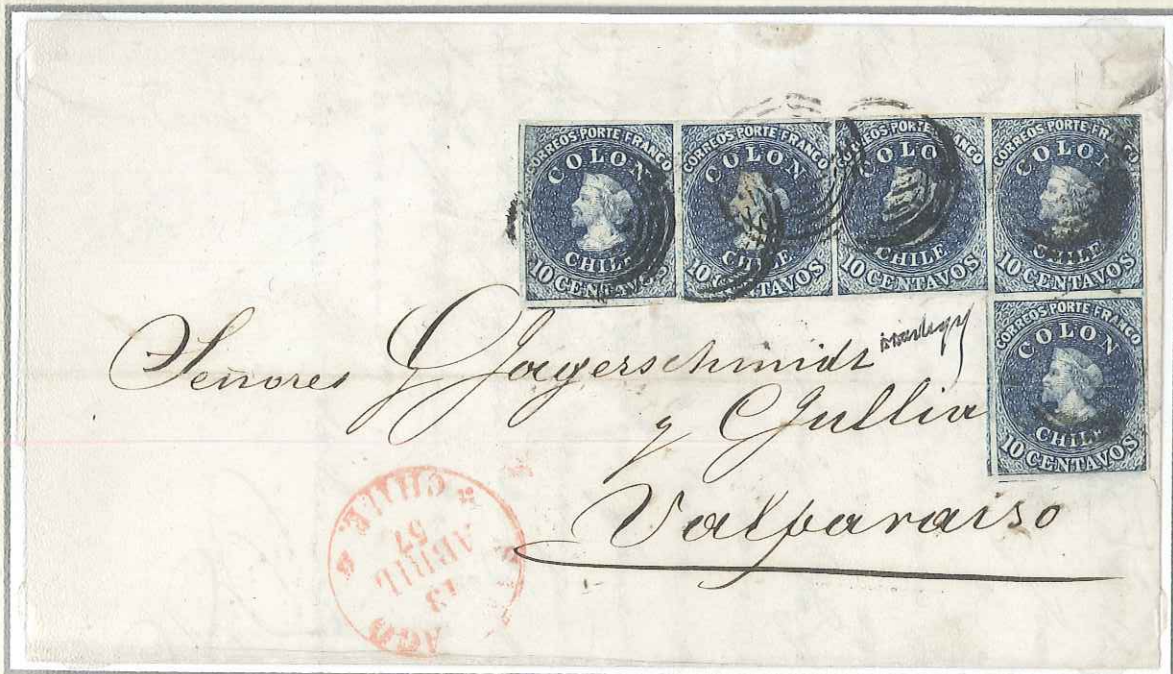 CORREOS PORTE FRANCO
COLON
CHILE
10 CENTAVOS
CORREOS PORTE FRANCO
COLON
CHILE
10 CENTAVOS
CORREOS PORTE FRANCO
COLON
CHILE
10 CENTAVOS
CORREOS PORTE FRANCO
COLON
CHILE
10 CENTAVOS
CORREOS PORTE FRANCO
COLON
CHILE
10 CENTAVOS
Señores G Jagerschmidt
y Jullia
Valparaiso
AGO
13
ABRIL
57
* CHILE *